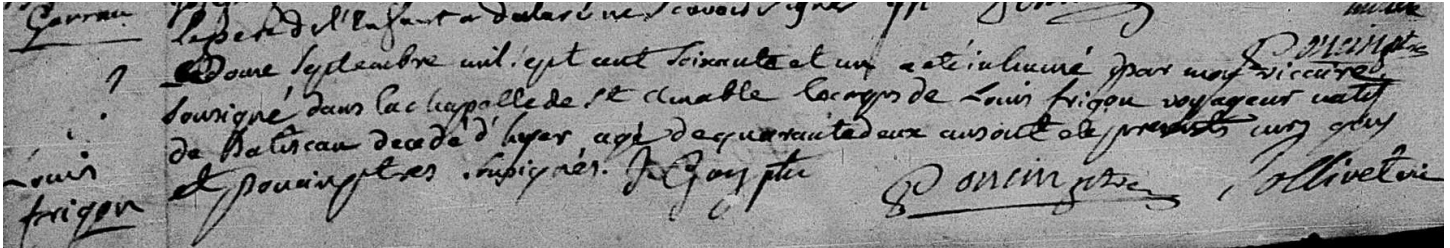 Garreau
le pere de l'Enfant a declaré ne scavoir signer
Poncin ptre
Ledouze septembre mil sept cent soixante et un a eté inhumé par moy viccaire
sousigné dans la chapelle de st amable le corps de Louis frigon voyageur natif
de Batiscan decedé d'hyer agé de quarante deux ans ont ete presents mrs guy
et poncin ptres sousignés. J Guy ptre Poncin ptre Jollivet vic
Louis
frigon